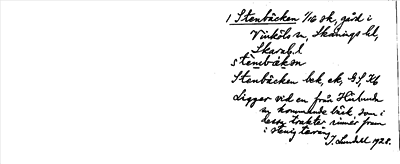 1 Stenbäcken 1/16 sk, gård i
Vinköls sn, Skånings hd,
Skarab.l
stembækən
Stenbäcken bck, ek, GS, K6
Ligger vid en från
sg kommande bäck, som i
dessa trakter rinner fram
i stenig terräng
J. Lundell 1928.